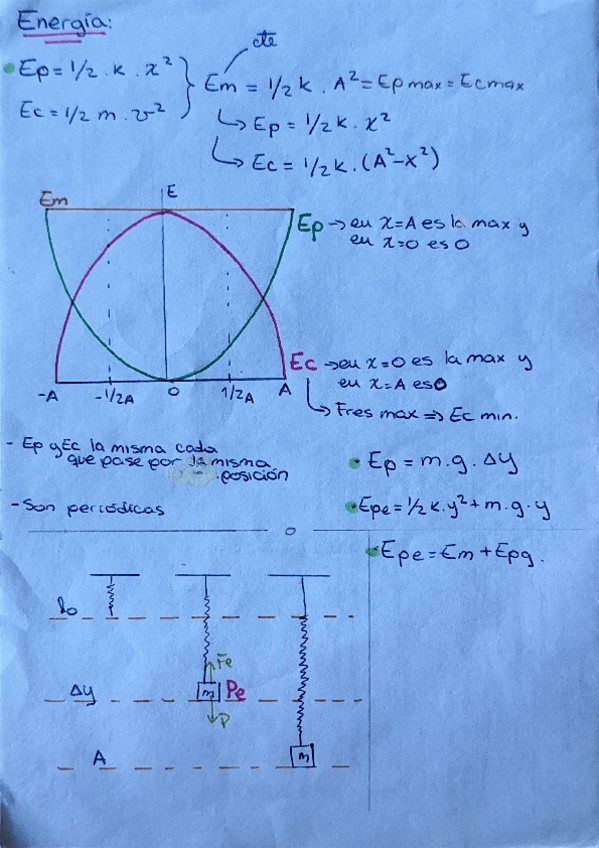 Energía:
cte
Ep = 1/2 . k . x²
Ec = 1/2 m . v²
Em = 1/2 k . A² = Ep max = Ec max
↳ Ep = 1/2 k . x²
↳ Ec = 1/2 k . (A² - x²)
Em
E
Ep → en x=A es la max y
en x=0 es 0
Ec → en x=0 es la max y
en x=A es 0
↳ Fres max ⇒ Ec min.
-A -1/2A 0 1/2A A
- Ep y Ec la misma cada
que pase por la misma
posición
- Son periódicas
• Ep = m . g . Δy
• Epe = 1/2 k . y² + m . g . y
• Epe = Em + Epg.
lo
Fe
m Pe
Δy
P
A
m